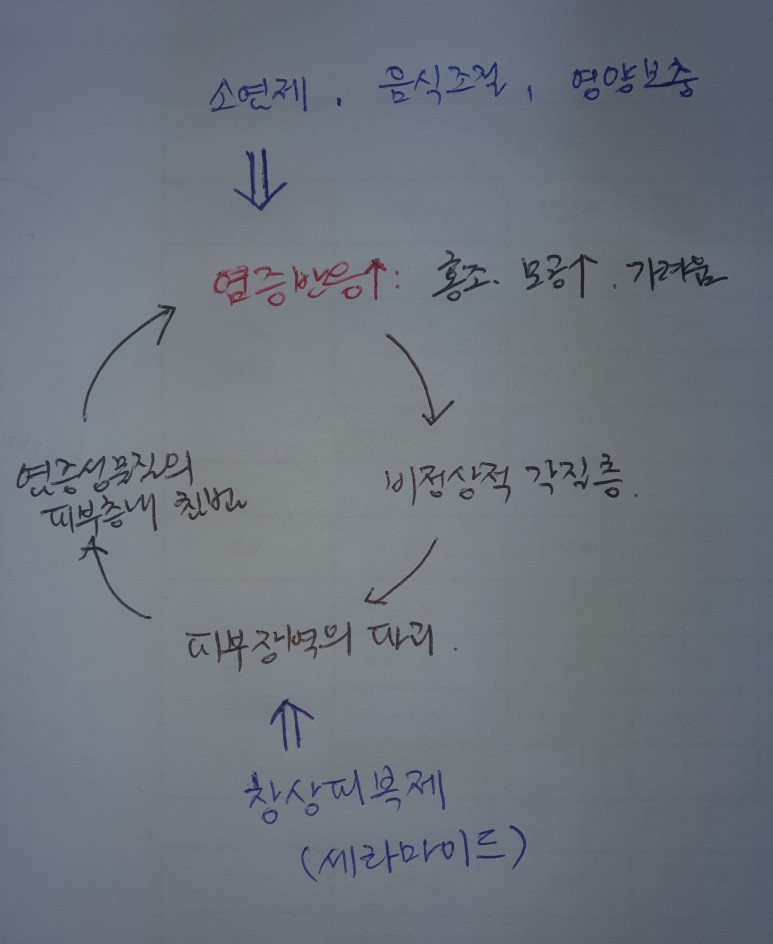 소염제, 음식조절, 영양보충
⇓
염증반응↑: 홍조. 모공↑. 가려움
비정상적 각질층.
염증성물질의
피부층내 침범
피부장벽의 파괴.
⇑
창상피복제
(세라마이드)